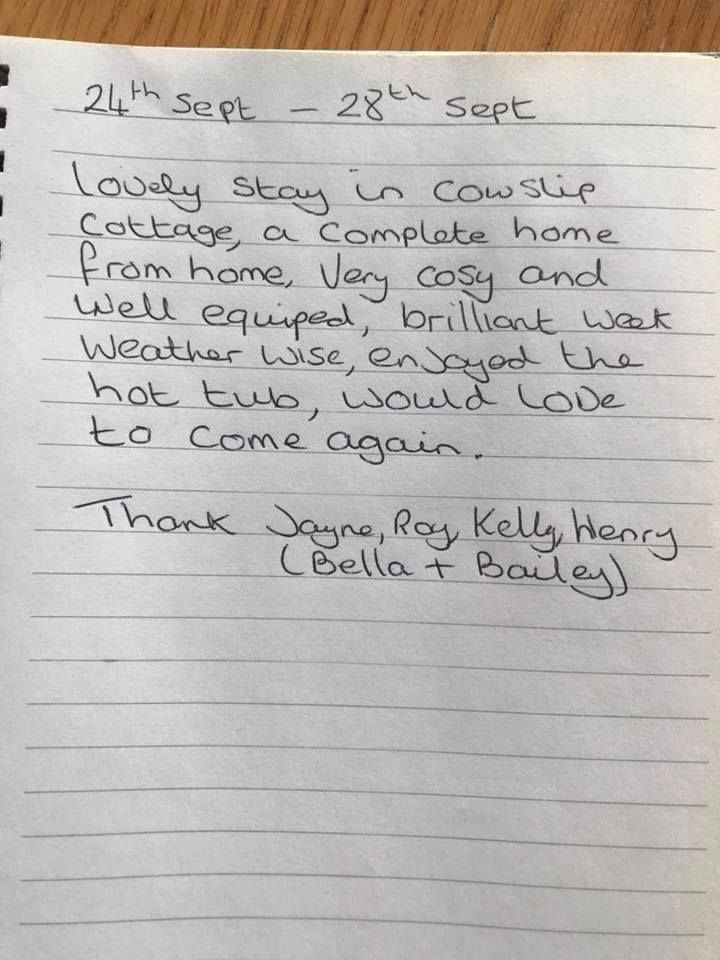 24th Sept - 28th Sept
Lovely stay in Cowslip
Cottage, a complete home
from home, Very cosy and
Well equiped, brilliant week
weather wise, enjoyed the
hot tub, would love
to come again.
Thank Jayne, Roy, Kelly, Henry
(Bella + Bailey)